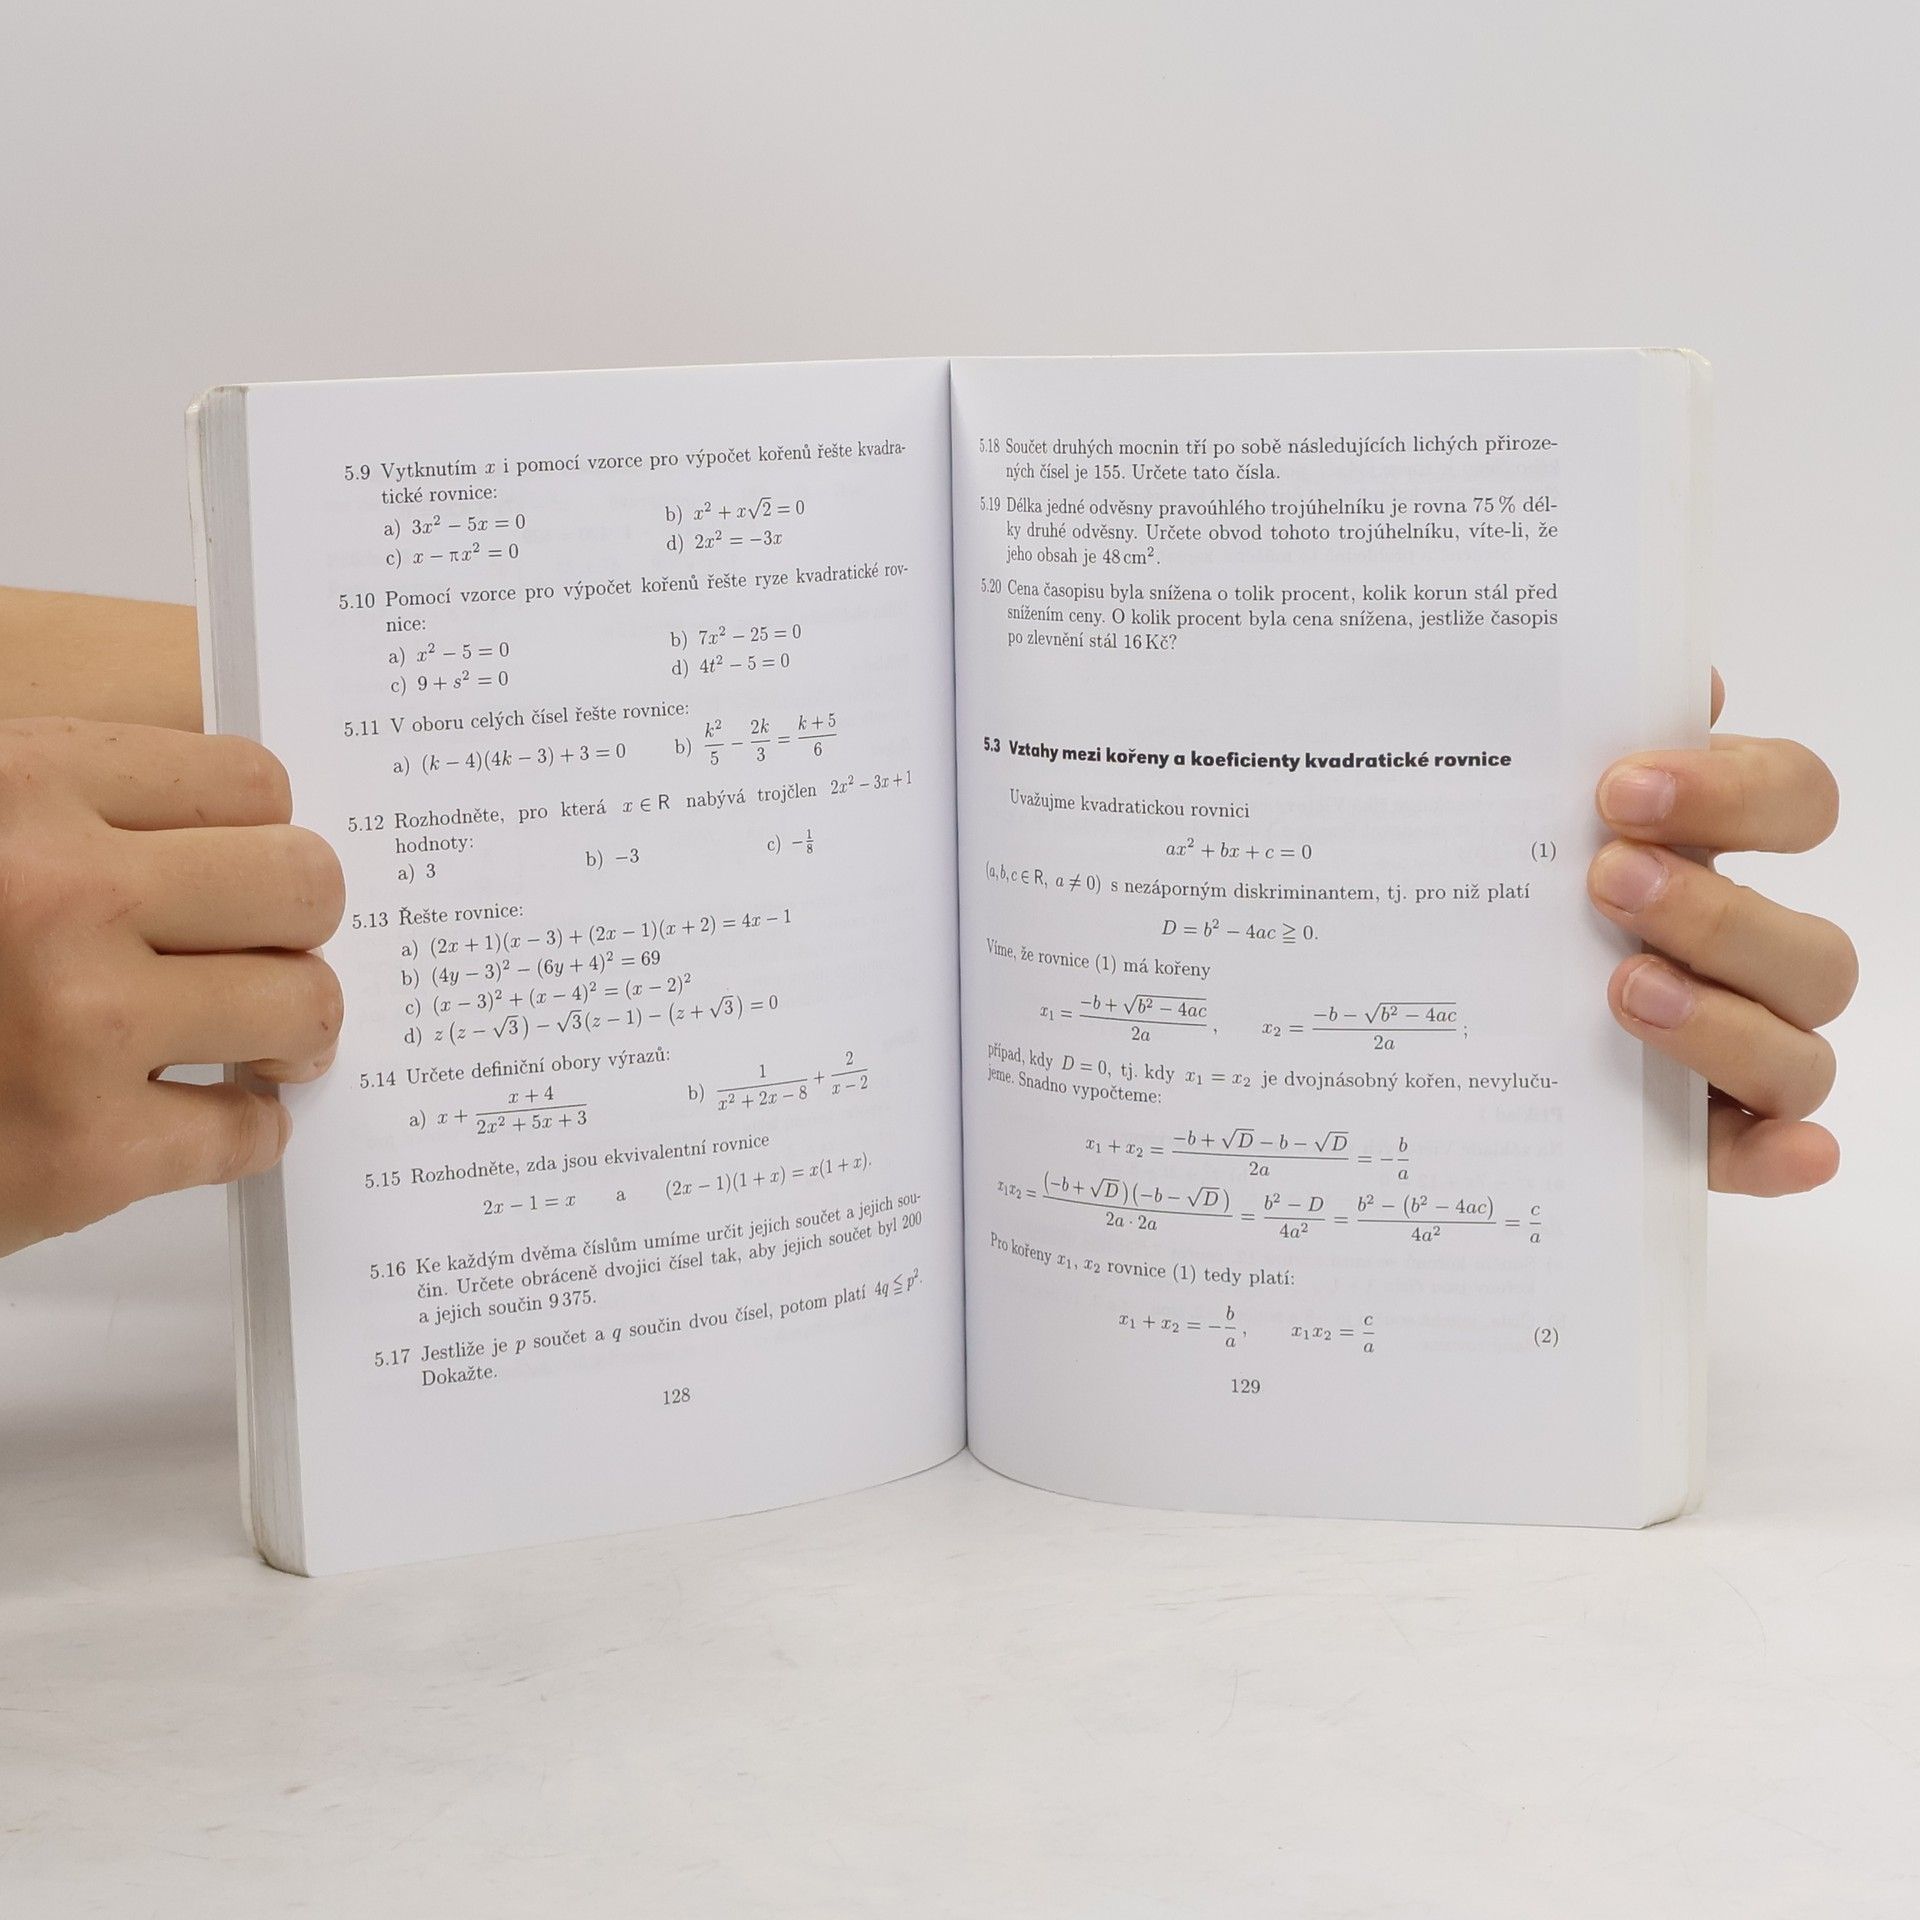 5.9 Vytknutím x i pomocí vzorce pro výpočet kořenů řešte kvadra-
tické rovnice:
a) 3x² − 5x = 0 b) x² + x√2 = 0
c) x − πx² = 0 d) 2x² = −3x
5.10 Pomocí vzorce pro výpočet kořenů řešte ryze kvadratické rov-
nice:
a) x² − 5 = 0 b) 7x² − 25 = 0
c) 9 + s² = 0 d) 4t² − 5 = 0
5.11 V oboru celých čísel řešte rovnice:
a) (k − 4)(4k − 3) + 3 = 0 b) k²/5 − 2k/3 = (k + 5)/6
5.12 Rozhodněte, pro která x ∈ R nabývá trojčlen 2x² − 3x + 1
hodnoty:
a) 3 b) −3 c) −1/8
5.13 Řešte rovnice:
a) (2x + 1)(x − 3) + (2x − 1)(x + 2) = 4x − 1
b) (4y − 3)² − (6y + 4)² = 69
c) (x − 3)² + (x − 4)² = (x − 2)²
d) z(z − √3) − √3(z − 1) − (z + √3) = 0
5.14 Určete definiční obory výrazů:
a) x + (x + 4)/(2x² + 5x + 3) b) 1/(x² + 2x − 8) + 2/(x − 2)
5.15 Rozhodněte, zda jsou ekvivalentní rovnice
2x − 1 = x a (2x − 1)(1 + x) = x(1 + x).
5.16 Ke každým dvěma číslům umíme určit jejich součet a jejich sou-
čin. Určete obráceně dvojici čísel tak, aby jejich součet byl 200
a jejich součin 9 375.
5.17 Jestliže je p součet a q součin dvou čísel, potom platí 4q ≦ p².
Dokažte.
128
5.18 Součet druhých mocnin tří po sobě následujících lichých přiroze-
ných čísel je 155. Určete tato čísla.
5.19 Délka jedné odvěsny pravoúhlého trojúhelníku je rovna 75 % dél-
ky druhé odvěsny. Určete obvod tohoto trojúhelníku, víte-li, že
jeho obsah je 48 cm².
5.20 Cena časopisu byla snížena o tolik procent, kolik korun stál před
snížením ceny. O kolik procent byla cena snížena, jestliže časopis
po zlevnění stál 16 Kč?
5.3 Vztahy mezi kořeny a koeficienty kvadratické rovnice
Uvažujme kvadratickou rovnici
ax² + bx + c = 0 (1)
(a, b, c ∈ R, a ≠ 0) s nezáporným diskriminantem, tj. pro niž platí
D = b² − 4ac ≧ 0.
Víme, že rovnice (1) má kořeny
x₁ = (−b + √(b² − 4ac))/2a, x₂ = (−b − √(b² − 4ac))/2a;
případ, kdy D = 0, tj. kdy x₁ = x₂ je dvojnásobný kořen, nevyluču-
jeme. Snadno vypočteme:
x₁ + x₂ = (−b + √D − b − √D)/2a = −b/a
x₁x₂ = (−b + √D)(−b − √D)/(2a · 2a) = (b² − D)/4a² = (b² − (b² − 4ac))/4a² = c/a
Pro kořeny x₁, x₂ rovnice (1) tedy platí:
x₁ + x₂ = −b/a, x₁x₂ = c/a (2)
129